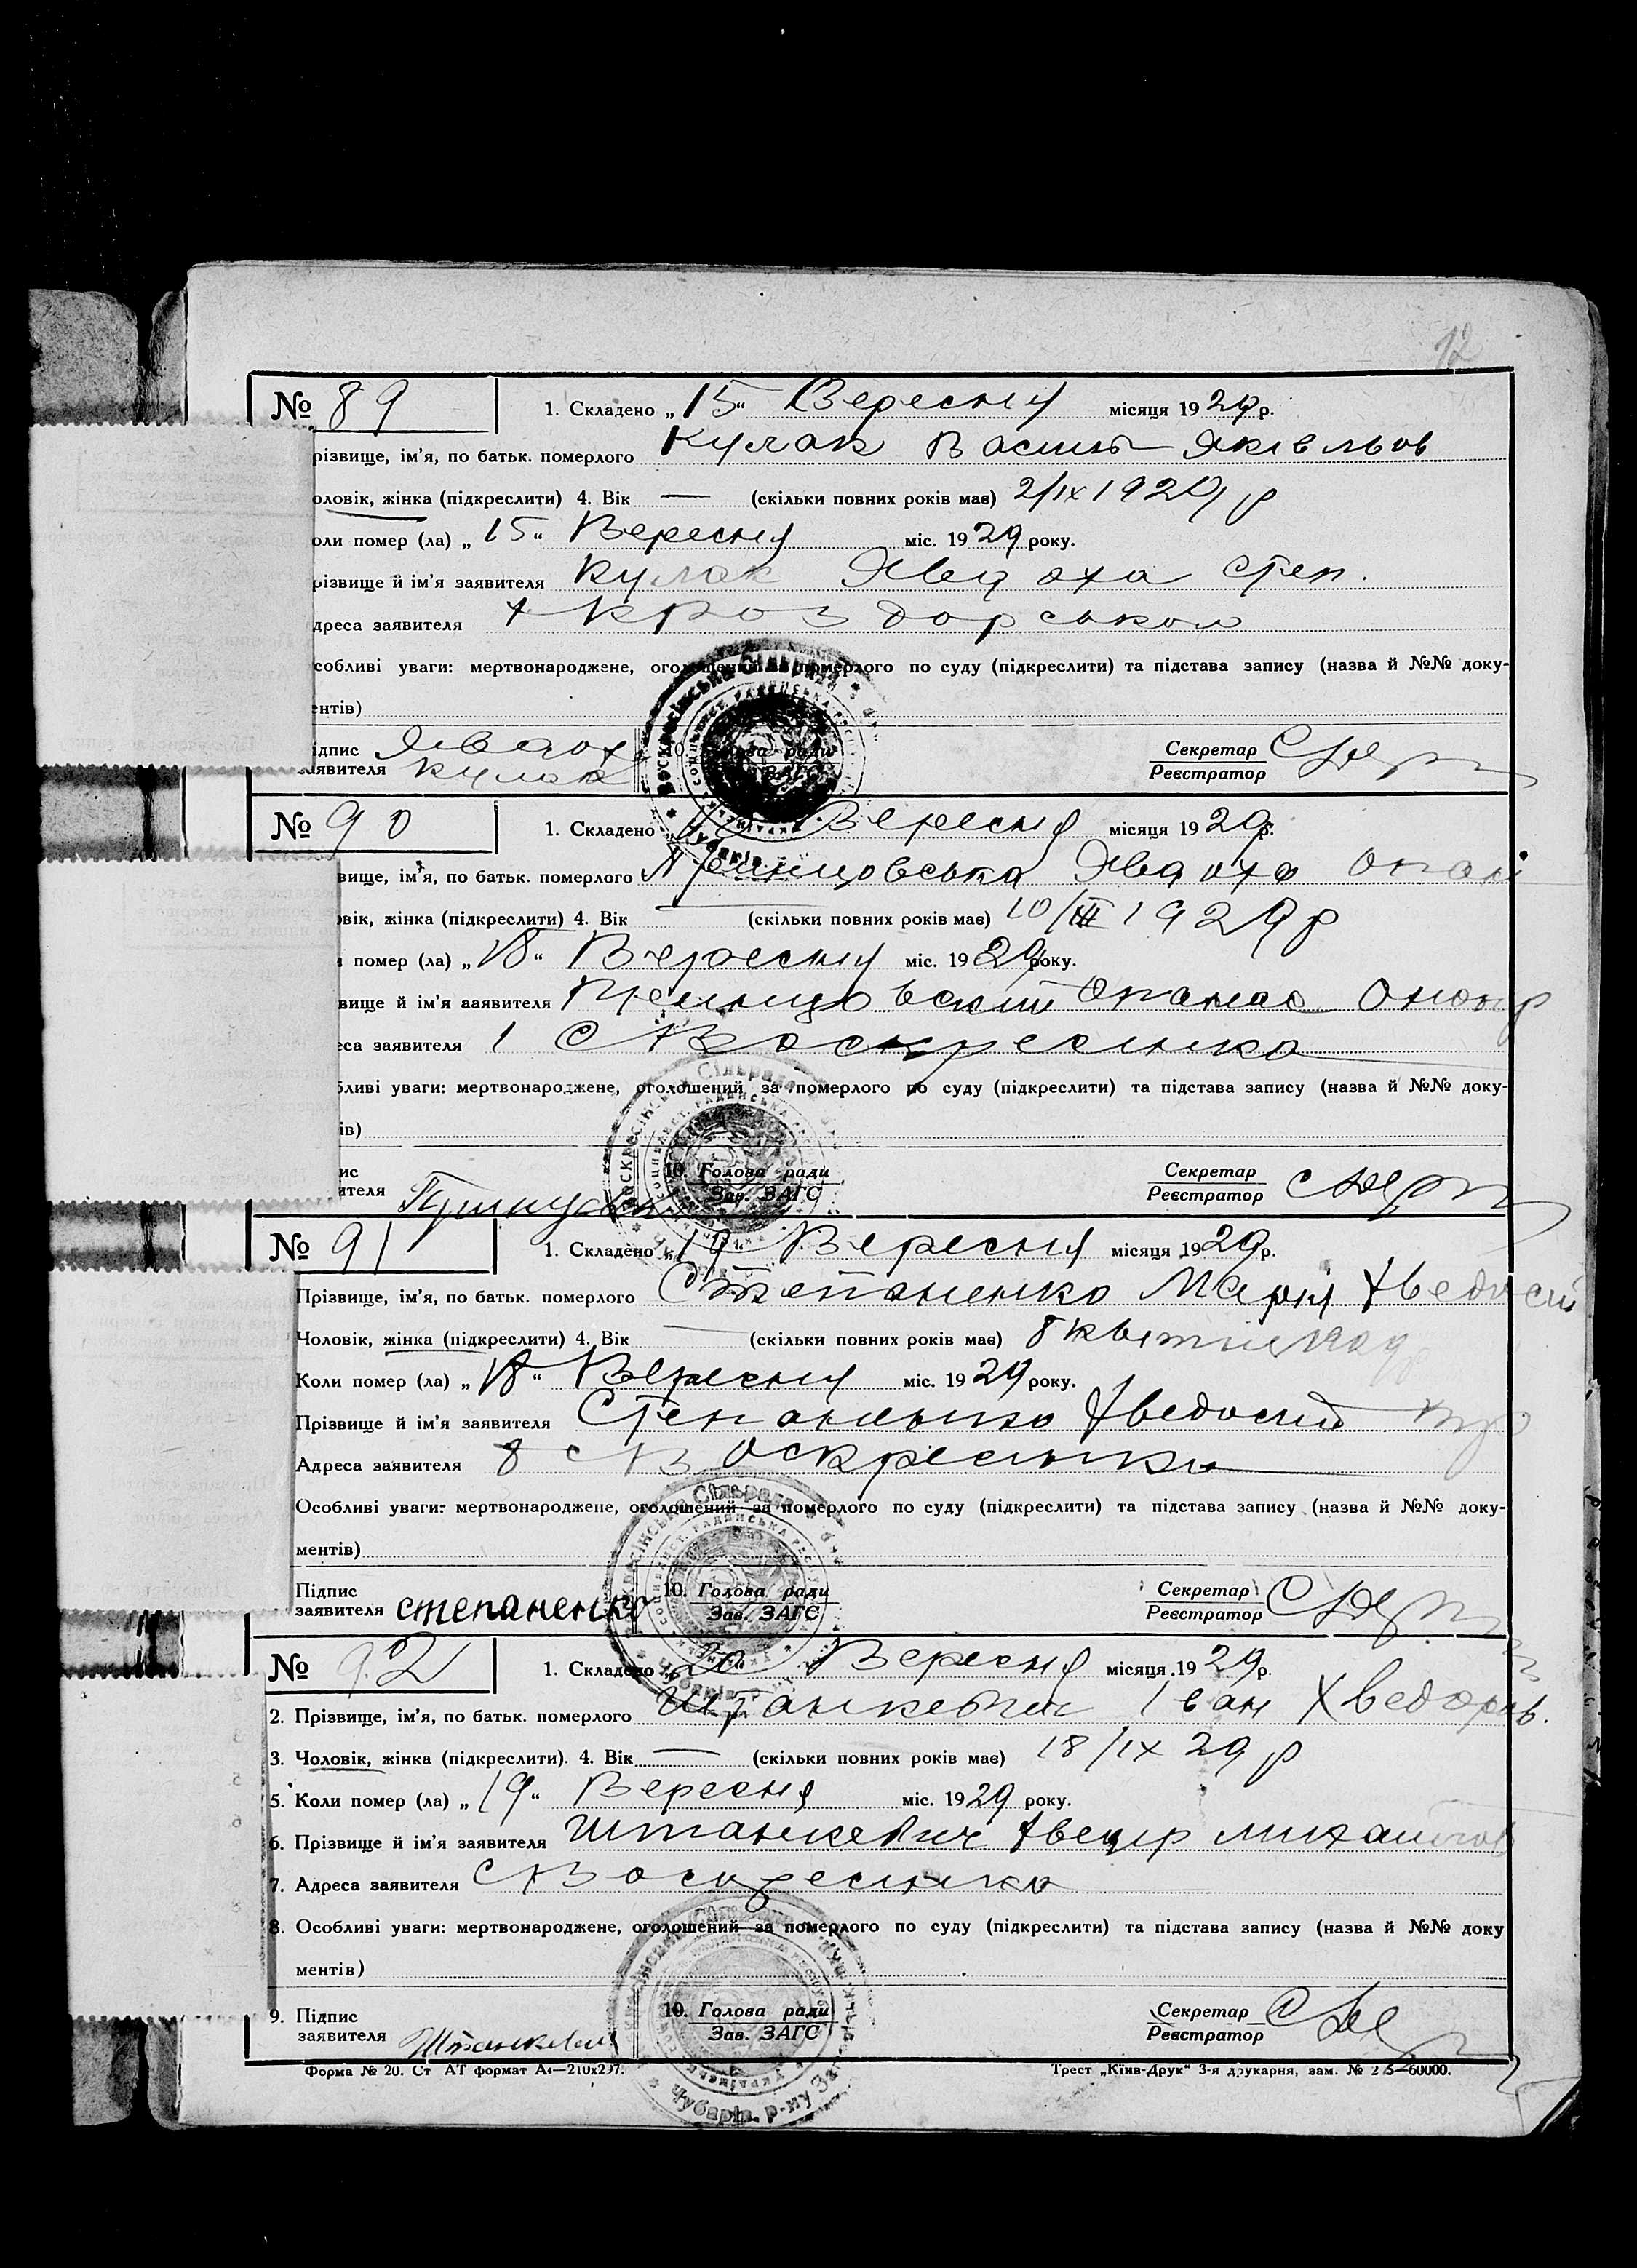 12
№ 89 1. Складено „15“ Вересня місяця 1929 р.
різвище, ім'я, по батьк. померлого Кулак Василь Яківльов
оловік, жінка (підкреслити) 4. Вік — (скільки повних років має) 2/ІХ 1929 р
оли помер (ла) „15“ Вересня міс. 1929 року.
різвище й ім'я заявителя Кулак Явдоха Степ.
дреса заявителя
собливі уваги: мертвонароджене, оголошений за померлого по суду (підкреслити) та підстава запису (назва й №№ доку-
ентів)
ідпис Явдоха 10. Голова ради Секретар
аявителя Кулак Зав. ЗАГС Реєстратор
№ 90 1. Складено Вересня місяця 1929 р.
вище, ім'я, по батьк. померлого Явдоха Опан
овік, жінка (підкреслити) 4. Вік — (скільки повних років має) 10/ІІІ 1929 р
и помер (ла) „18“ Вересня міс. 1929 року.
вище й ім'я заявителя Опанас
еса заявителя 1 С Воскресенка
бливі уваги: мертвонароджене, оголошений за померлого по суду (підкреслити) та підстава запису (назва й №№ доку-
ів)
ис 10. Голова ради Секретар
ителя Зав. ЗАГС Реєстратор
№ 91 1. Складено „19“ Вересня місяця 1929 р.
Прізвище, ім'я, по батьк. померлого Степаненко Марія Хведосій
Чоловік, жінка (підкреслити) 4. Вік — (скільки повних років має) 8 квітня
Коли помер (ла) „18“ Вересня міс. 1929 року.
Прізвище й ім'я заявителя Степаненко Хведосій
Адреса заявителя 8 С Воскресенка
Особливі уваги: мертвонароджене, оголошений за померлого по суду (підкреслити) та підстава запису (назва й №№ доку-
ментів)
Підпис 10. Голова ради Секретар
заявителя степаненко Зав. ЗАГС Реєстратор
№ 92 1. Складено „20“ Вересня місяця 1929 р.
2. Прізвище, ім'я, по батьк. померлого Штанкевич Іван Хведоров.
3. Чоловік, жінка (підкреслити). 4. Вік — (скільки повних років має) 18/ІХ 29 р
5. Коли помер (ла) „19“ Вересня міс. 1929 року.
6. Прізвище й ім'я заявителя Штанкевич Хведір Михайлов
7. Адреса заявителя С Воскресенка
8. Особливі уваги: мертвонароджене, оголошений за померлого по суду (підкреслити) та підстава запису (назва й №№ доку
ментів)
9. Підпис 10. Голова ради Секретар
заявителя Штанкевич Зав. ЗАГС Реєстратор
Форма № 20. Ст АТ формат А4—210х297. Трест „Київ-Друк“ 3-я друкарня, зам. № 60000.